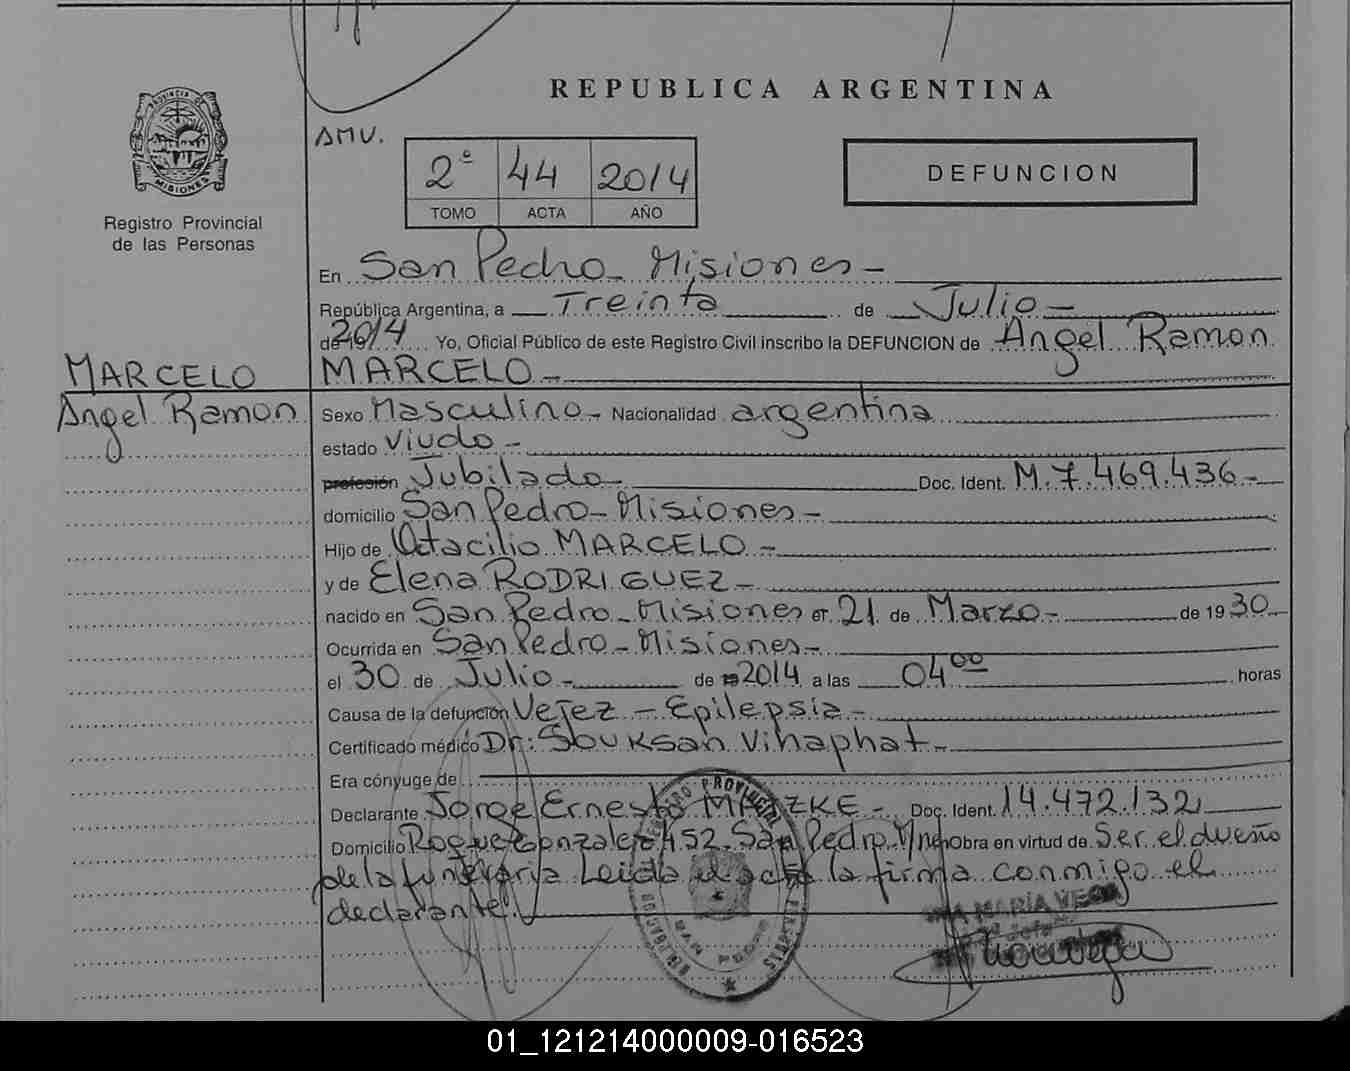 REPUBLICA ARGENTINA
PROVINCIA DE
MISIONES
Registro Provincial
de las Personas
AMU.
2º 44 2014
TOMO ACTA AÑO
DEFUNCION
En San Pedro Misiones
República Argentina, a Treinta de Julio
de 19 2014 Yo, Oficial Público de este Registro Civil inscribo la DEFUNCION de Angel Ramon
MARCELO
MARCELO
Angel Ramon
Sexo Masculino Nacionalidad argentina
estado Viudo
profesión Jubilado Doc. Ident. M.7.469.436
domicilio San Pedro Misiones
Hijo de Octacilio MARCELO
y de Elena RODRIGUEZ
nacido en San Pedro Misiones el 21 de Marzo de 1930
Ocurrida en San Pedro Misiones
el 30 de Julio de 2014 a las 04 00 horas
Causa de la defunción Vejez - Epilepsia
Certificado médico Dr: Souksan Vihaphat
Era cónyuge de
Declarante Jorge Ernesto Doc. Ident. 14.472.132
Domicilio Roque Gonzalez 452 San Pedro Mnes Obra en virtud de Ser el dueño
de la funeraria Leida el acta la firma conmigo el
declarante.
REGISTRO PROVINCIAL DE LAS PERSONAS
SAN PEDRO
MARÍA VEGA
01_121214000009-016523